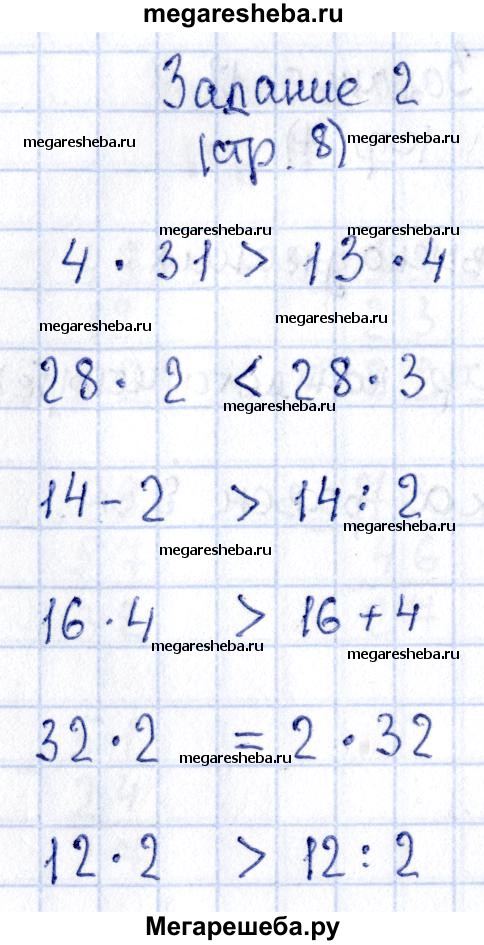 megaresheba.ru
Задание 2
megaresheba.ru megaresheba.ru
(стр. 8)
megaresheba.ru megaresheba.ru
4 · 31 > 13 · 4
megaresheba.ru megaresheba.ru
28 · 2 < 28 · 3
megaresheba.ru
14 - 2 > 14 : 2
megaresheba.ru
megaresheba.ru
16 · 4 > 16 + 4
megaresheba.ru megaresheba.ru
32 · 2 = 2 · 32
megaresheba.ru
12 · 2 > 12 : 2
Мегарешеба.ру